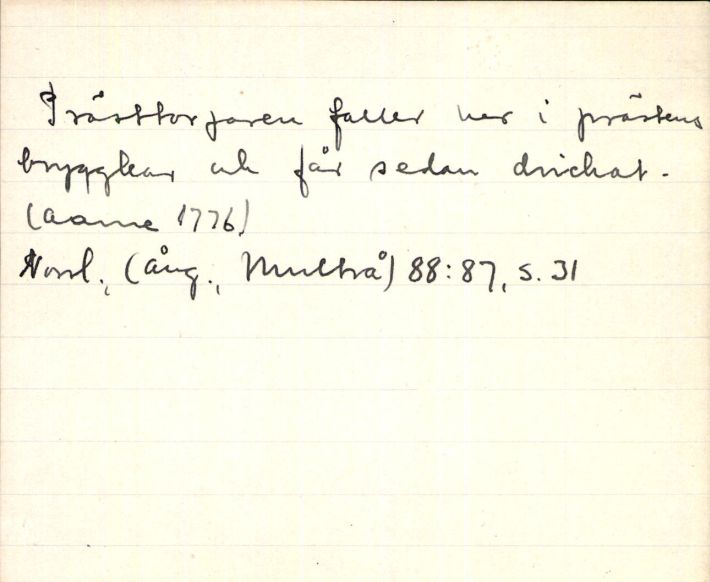 Prästtorparen faller ner i prästens
bryggkar och får sedan drickat.
(Aarne 1776)
Norrl., (Ång., Multrå) 88:87, s. 31